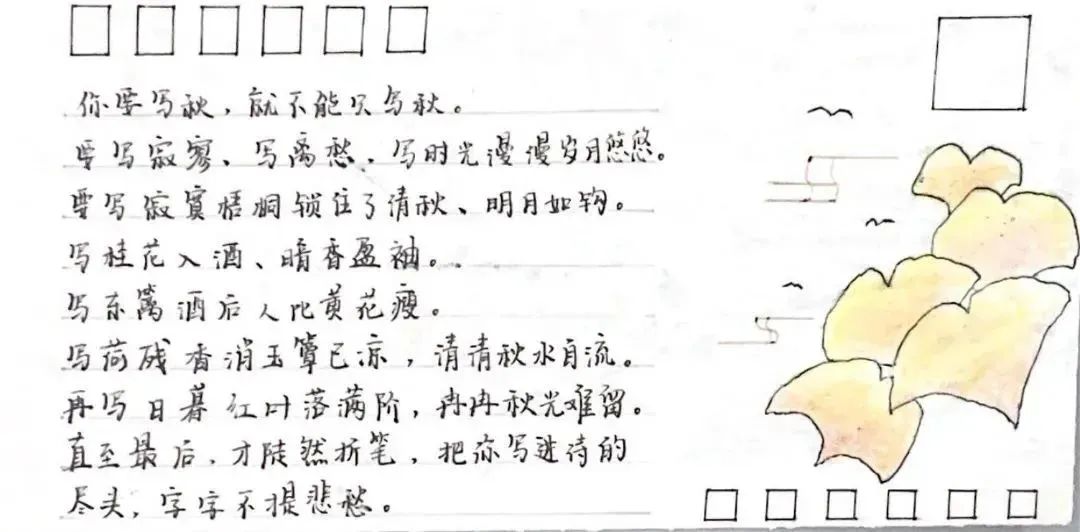 你要写秋，就不能只写秋。
要写寂寥、写离愁、写时光漫漫岁月悠悠。
要写寂寞梧桐锁住了清秋、明月如钩。
写桂花入酒、暗香盈袖。
写东篱酒后人比黄花瘦。
写荷残香消玉簟已凉，清清秋水自流。
再写日暮红叶落满阶，冉冉秋光难留。
直至最后，才陡然折笔，把你写进诗的
尽头，字字不提悲愁。